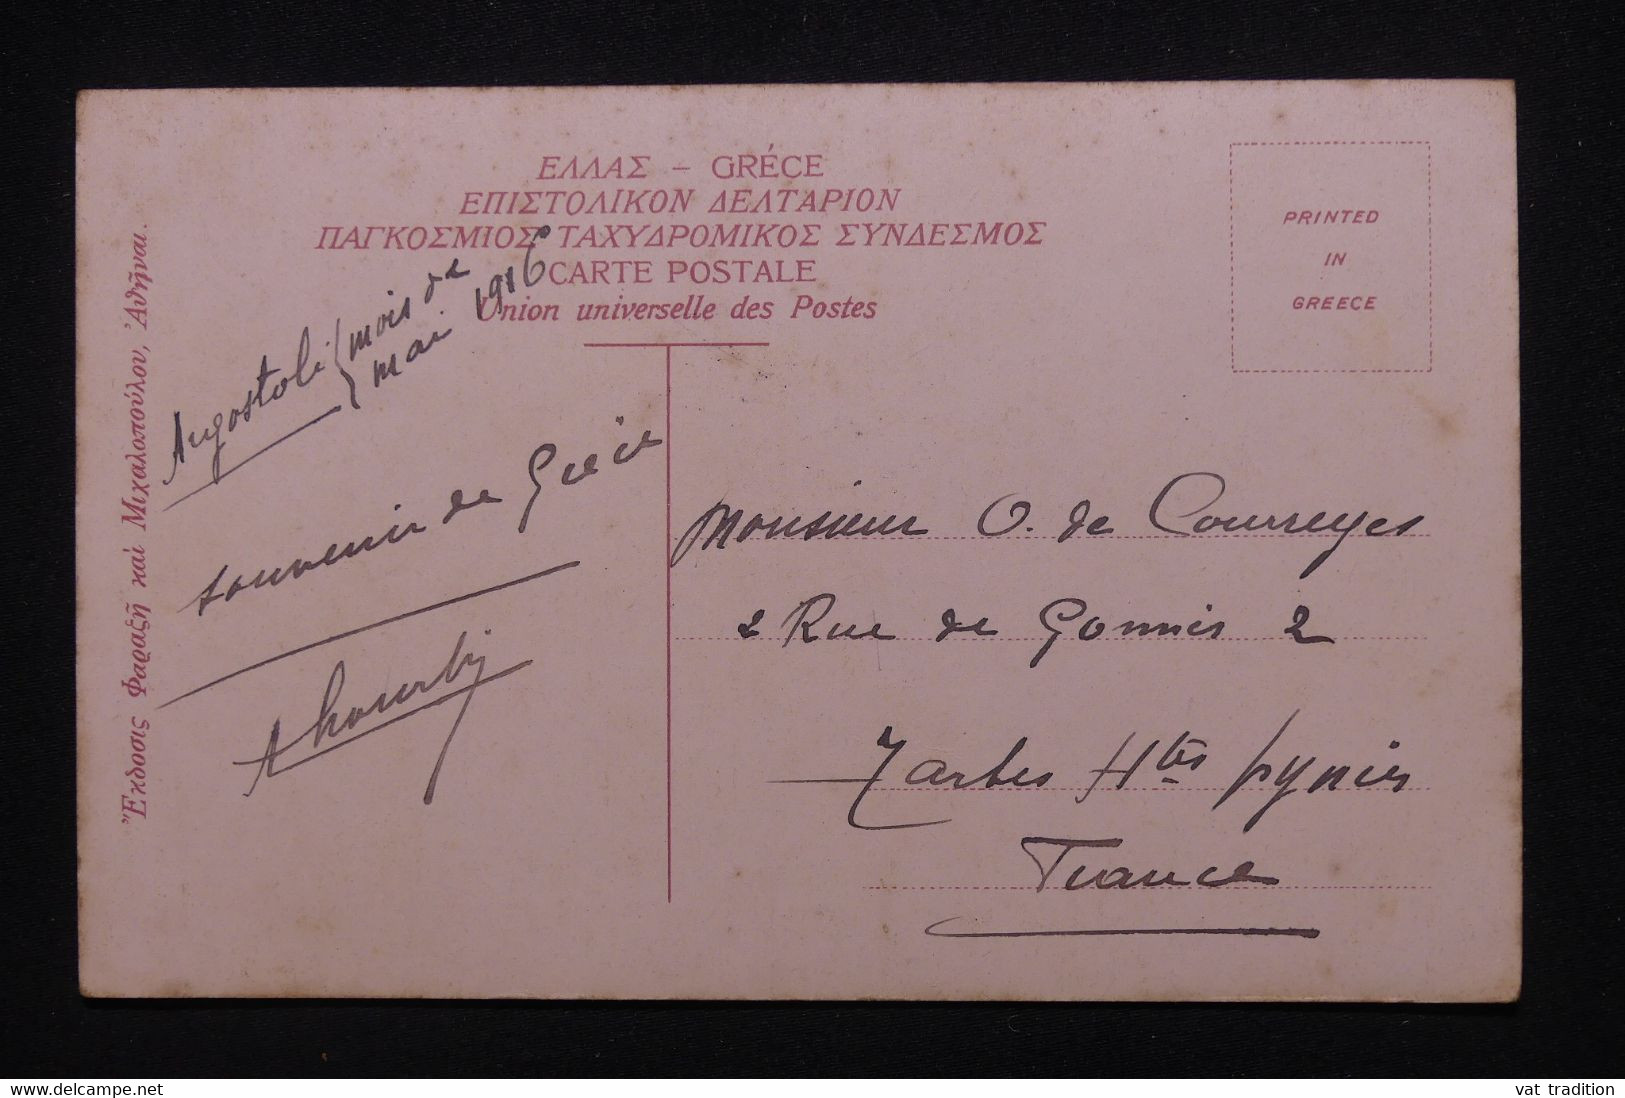 ΕΛΛΑΣ – GRÉCE
ΕΠΙΣΤΟΛΙΚΟΝ ΔΕΛΤΑΡΙΟΝ
ΠΑΓΚΟΣΜΙΟΣ ΤΑΧΥΔΡΟΜΙΚΟΣ ΣΥΝΔΕΣΜΟΣ
CARTE POSTALE
Union universelle des Postes
PRINTED
IN
GREECE
Ἔκδοσις Φαραζῆ καὶ Μιχαλοπούλου, Ἀθῆναι.
Argostoli
mois de
mai 1916
souvenir de Grèce
Monsieur O. de Courreyes
2 Rue de 2
Tarbes Htes pynées
France
delcampe.net
vat tradition